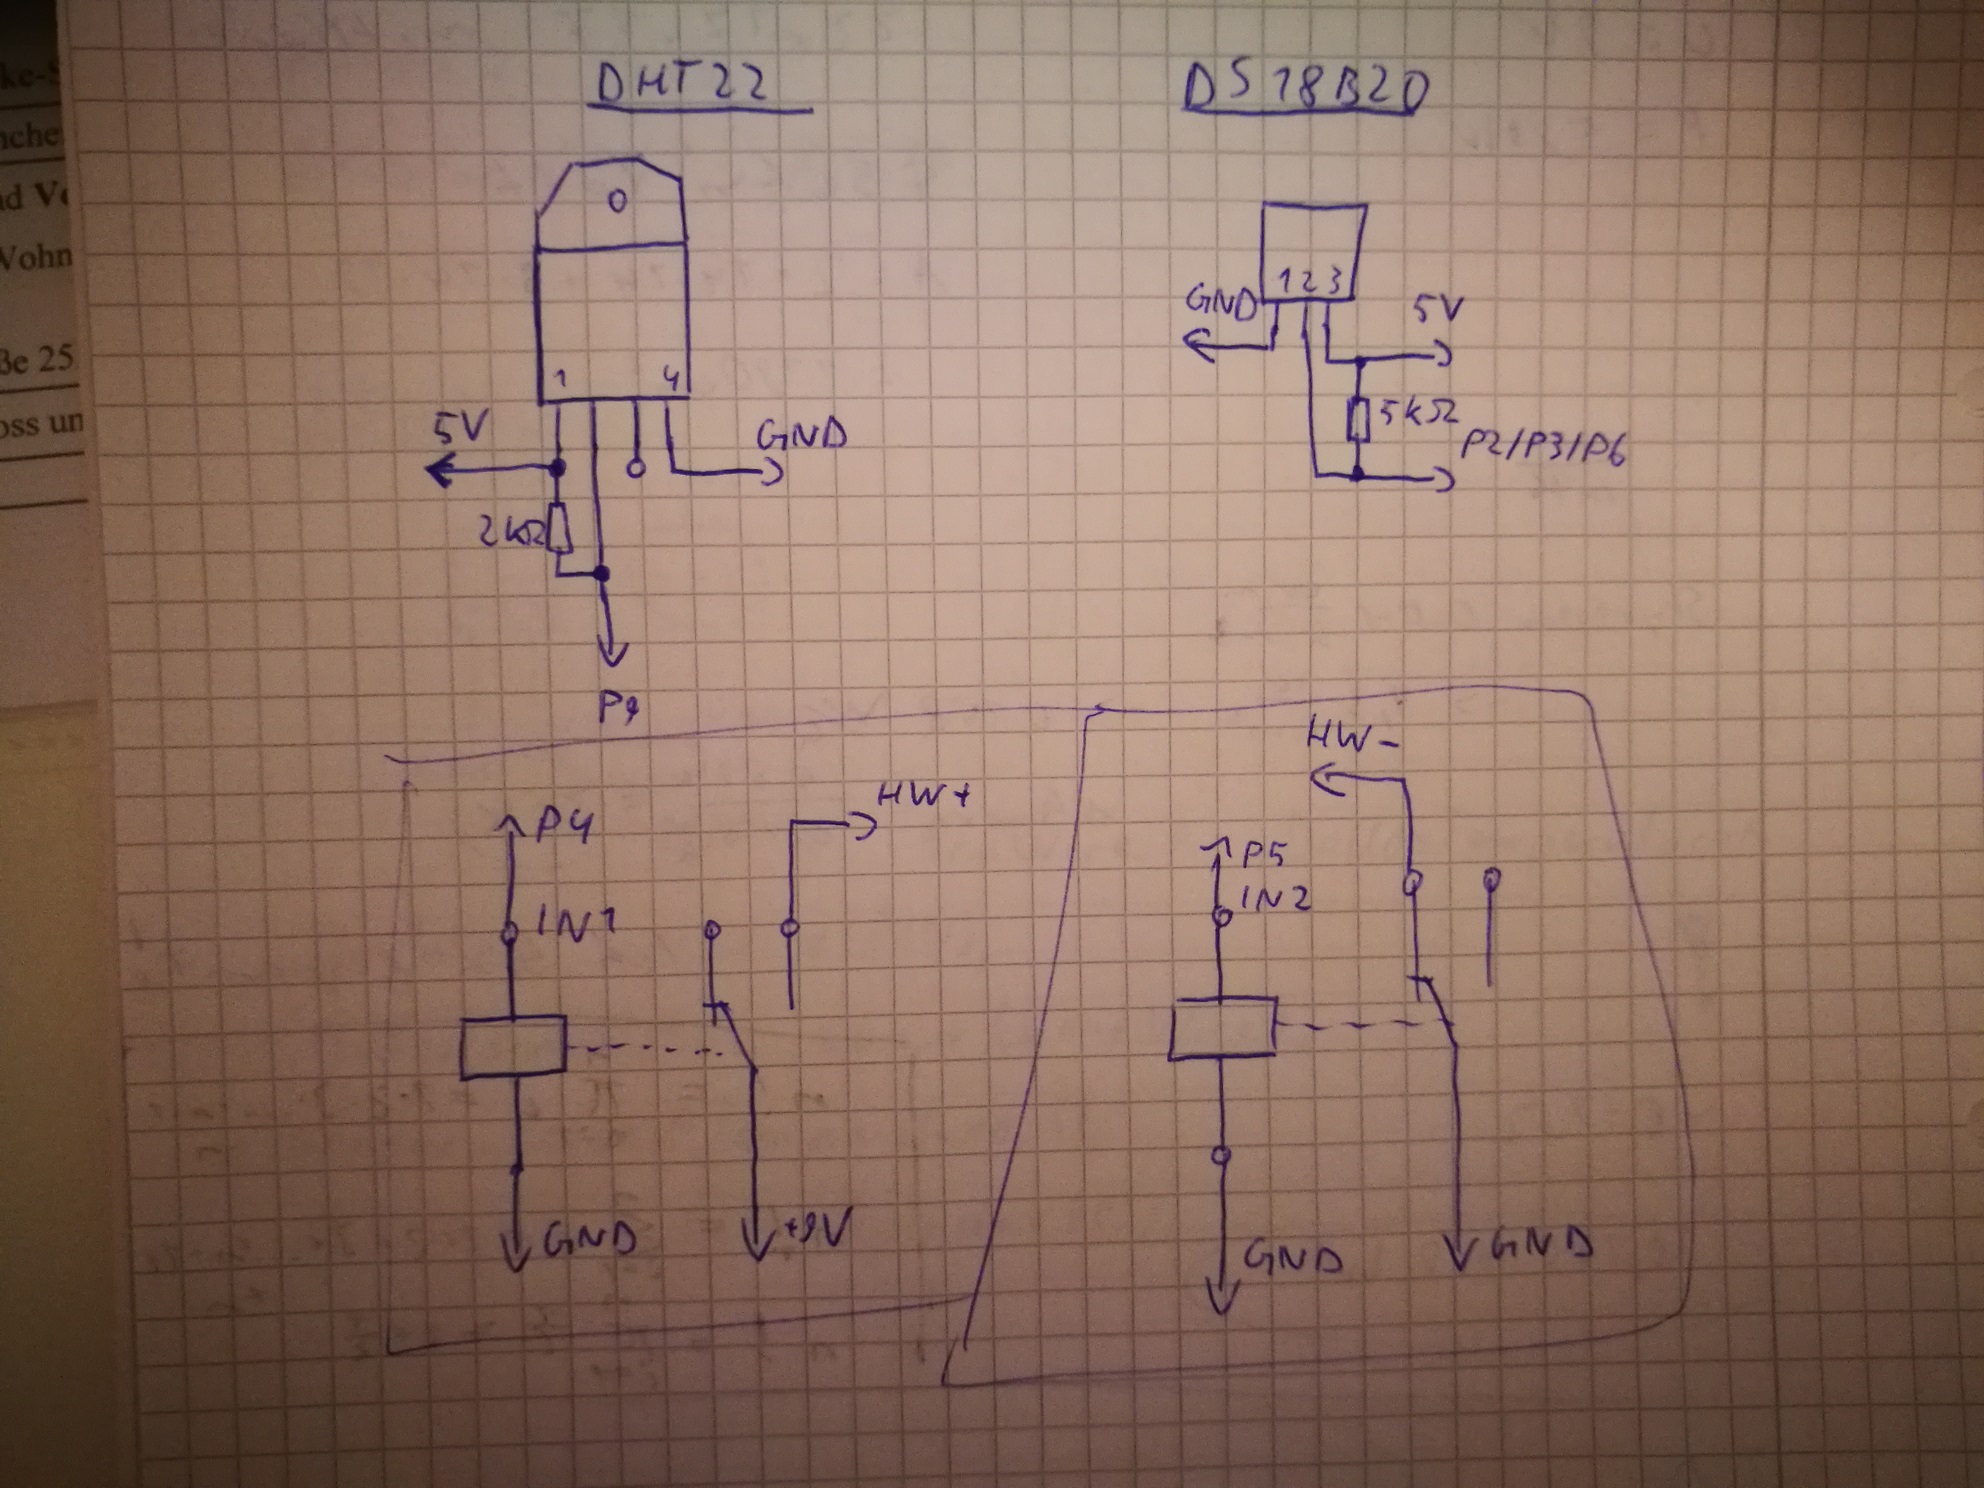 DHT22
DS18B20
1 4
5V
GND
2kΩ
GND
1 2 3
5V
5kΩ
P2/P3/P6
P4
IN1
HW+
GND
+9V
HW-
P5
IN2
GND
GND
ke-S
nche
Wohn
ße 25
oss un